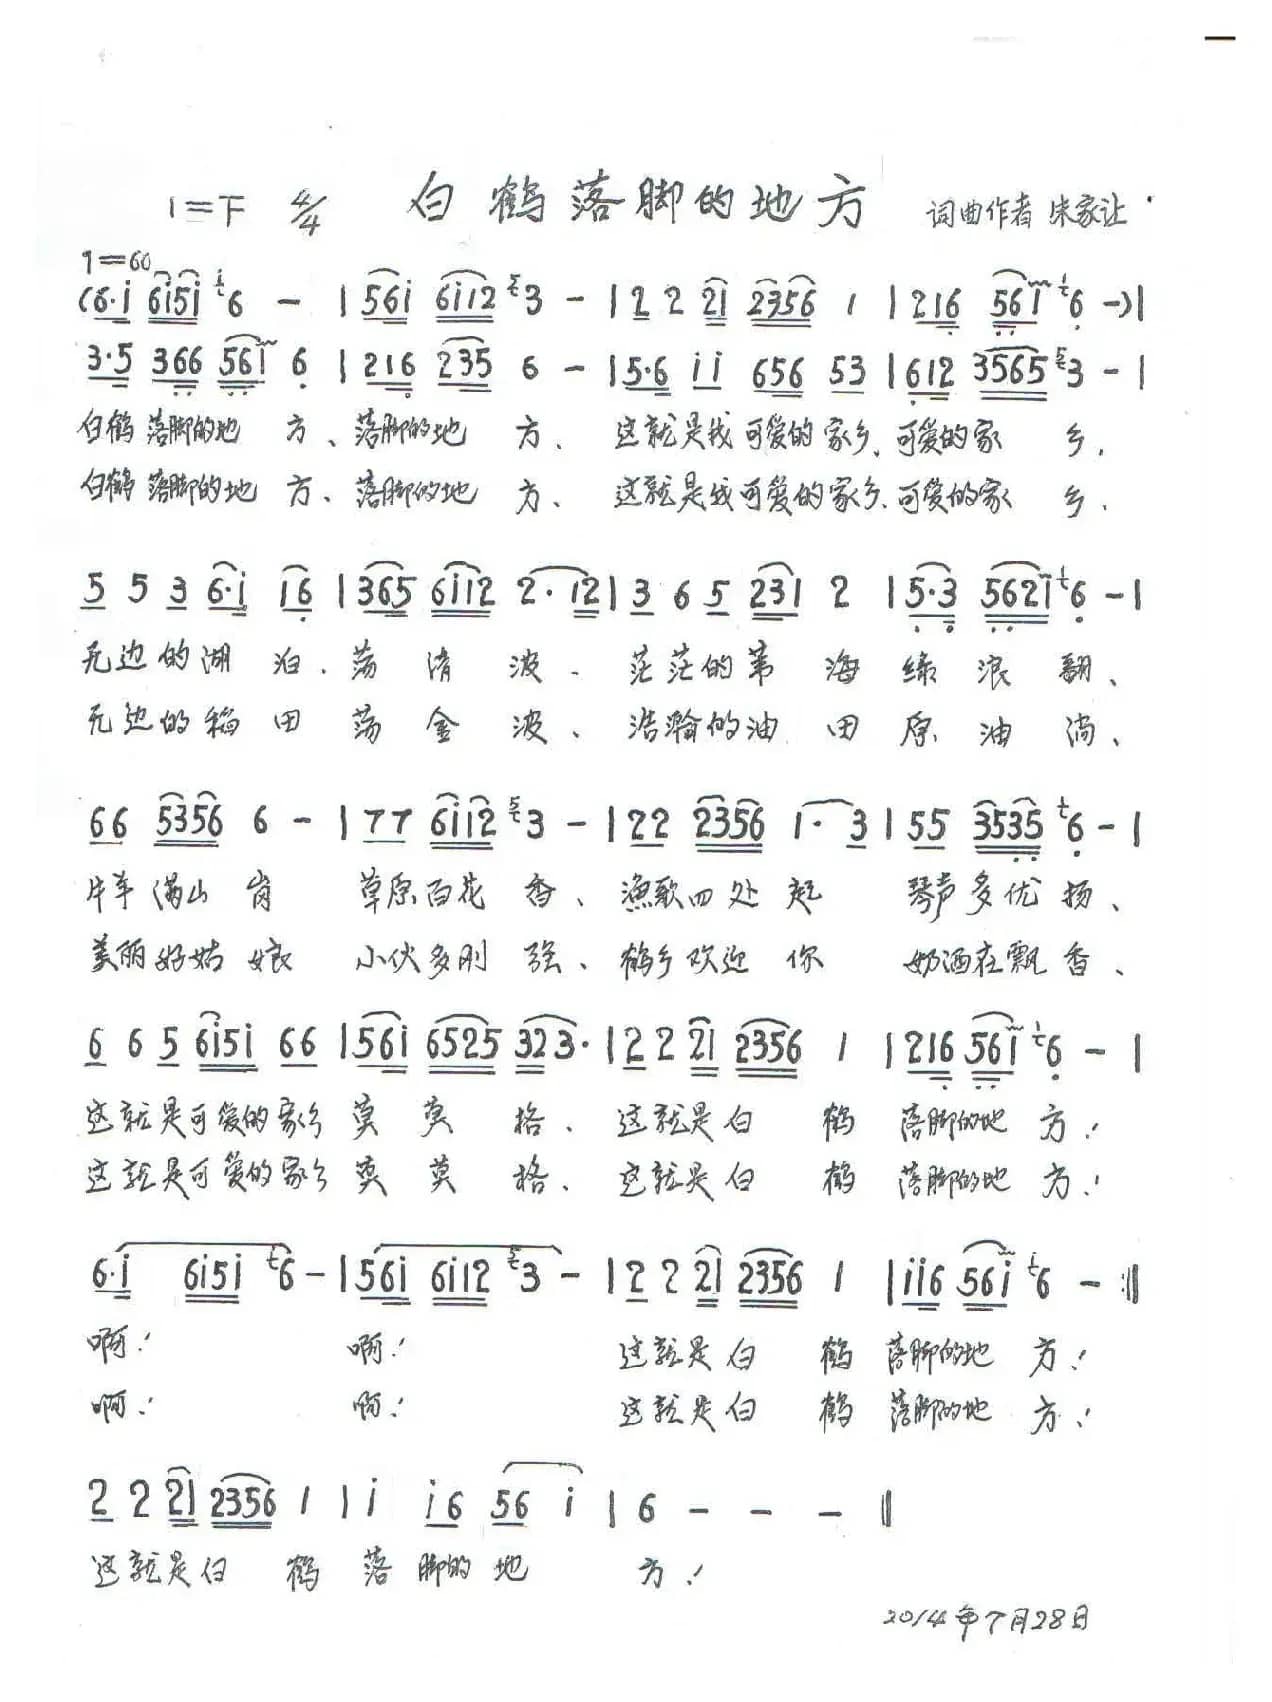 1=下 4/4 白鹤落脚的地方 词曲作者 朱家让
1=60
(6·i 6i5i 6 - | 56i 6i12 3 - | 2 2 21 2356 1 | 216 561 6 -) |
3·5 366 561 6 | 216 235 6 - | 5·6 ii 656 53 | 612 3565 3 - |
白鹤落脚的地方、落脚的地方、这就是我可爱的家乡、可爱的家乡,
白鹤落脚的地方、落脚的地方、这就是我可爱的家乡、可爱的家乡.
5 5 3 6·i 16 | 365 6i12 2·12 | 3 6 5 231 2 | 5·3 5621 6 - |
无边的湖泊.荡清波、茫茫的苇海绿浪翻、
无边的稻田荡金波、浩瀚的油田原油淌、
66 5356 6 - | 77 6i12 3 - | 22 2356 1·3 | 55 3535 6 - |
牛羊满山岗 草原百花香、渔歌四处起 琴声多优扬、
美丽好姑娘 小伙多刚强、鹤乡欢迎你 奶酒在飘香、
6 6 5 6i5i 66 | 56i 6525 323· | 2 2 21 2356 1 | 216 561 6 - |
这就是可爱的家乡莫莫格、这就是白鹤落脚的地方!
这就是可爱的家乡莫莫格、这就是白鹤落脚的地方!
6·i 6i5i 6 - | 56i 6i12 3 - | 2 2 21 2356 1 | ii6 56i 6 - :||
啊! 啊! 这就是白鹤落脚的地方!
啊! 啊! 这就是白鹤落脚的地方!
2 2 21 2356 1 | i i6 56 i | 6 - - - ||
这就是白鹤落脚的地方!
2014年7月28日